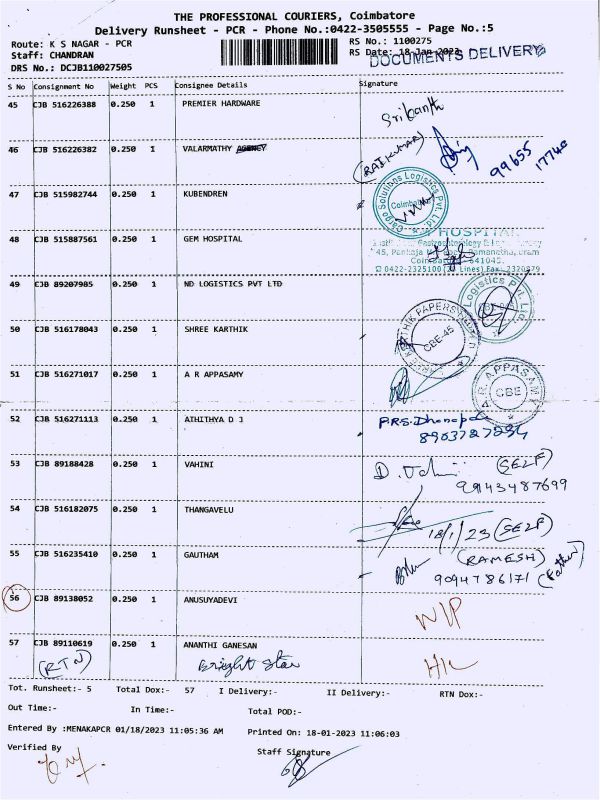 THE PROFESSIONAL COURIERS, Coimbatore
Delivery Runsheet - PCR - Phone No.:0422-3505555 - Page No.:5
Route: K S NAGAR - PCR
RS No.: 1100275
Staff: CHANDRAN
RS Date: 18-Jan-2023
DOCUMENTS DELIVERY
DRS No.: DCJB110027505
S No Consignment No Weight PCS Consignee Details Signature
45 CJB 516226388 0.250 1 PREMIER HARDWARE Srikanth
46 CJB 516226382 0.250 1 VALARMATHY AGENCY (RAJKUMAR) 99655 17740
47 CJB 515982744 0.250 1 KUBENDREN
Cargo Solutions Logistics Pvt. Ltd.
Coimbatore
48 CJB 515887561 0.250 1 GEM HOSPITAL
HOSPITAL
45, Pankaja Ramanathapuram
Coimbatore 641045.
0422-2325100 ( Lines) Fax: 2320879
49 CJB 89207985 0.250 1 ND LOGISTICS PVT LTD
Logistics Pvt. Ltd.
50 CJB 516178043 0.250 1 SHREE KARTHIK
KARTHIK PAPERS
CBE-45
51 CJB 516271017 0.250 1 A R APPASAMY
A.R. APPASAMY
CBE
52 CJB 516271113 0.250 1 ATHITHYA D J P.R.S.
53 CJB 89188428 0.250 1 VAHINI (SELF)
9943487699
54 CJB 516182075 0.250 1 THANGAVELU 18/1/23 (SELF)
55 CJB 516235410 0.250 1 GAUTHAM (RAMESH)
9094786171 (Father)
56 CJB 89138052 0.250 1 ANUSUYADEVI
57 CJB 89110619 0.250 1 ANANTHI GANESAN
(RTN) Bright Star
Tot. Runsheet:- 5 Total Dox:- 57 I Delivery:- II Delivery:- RTN Dox:-
Out Time:- In Time:- Total POD:-
Entered By :MENAKAPCR 01/18/2023 11:05:36 AM Printed On: 18-01-2023 11:06:03
Verified By
Staff Signature